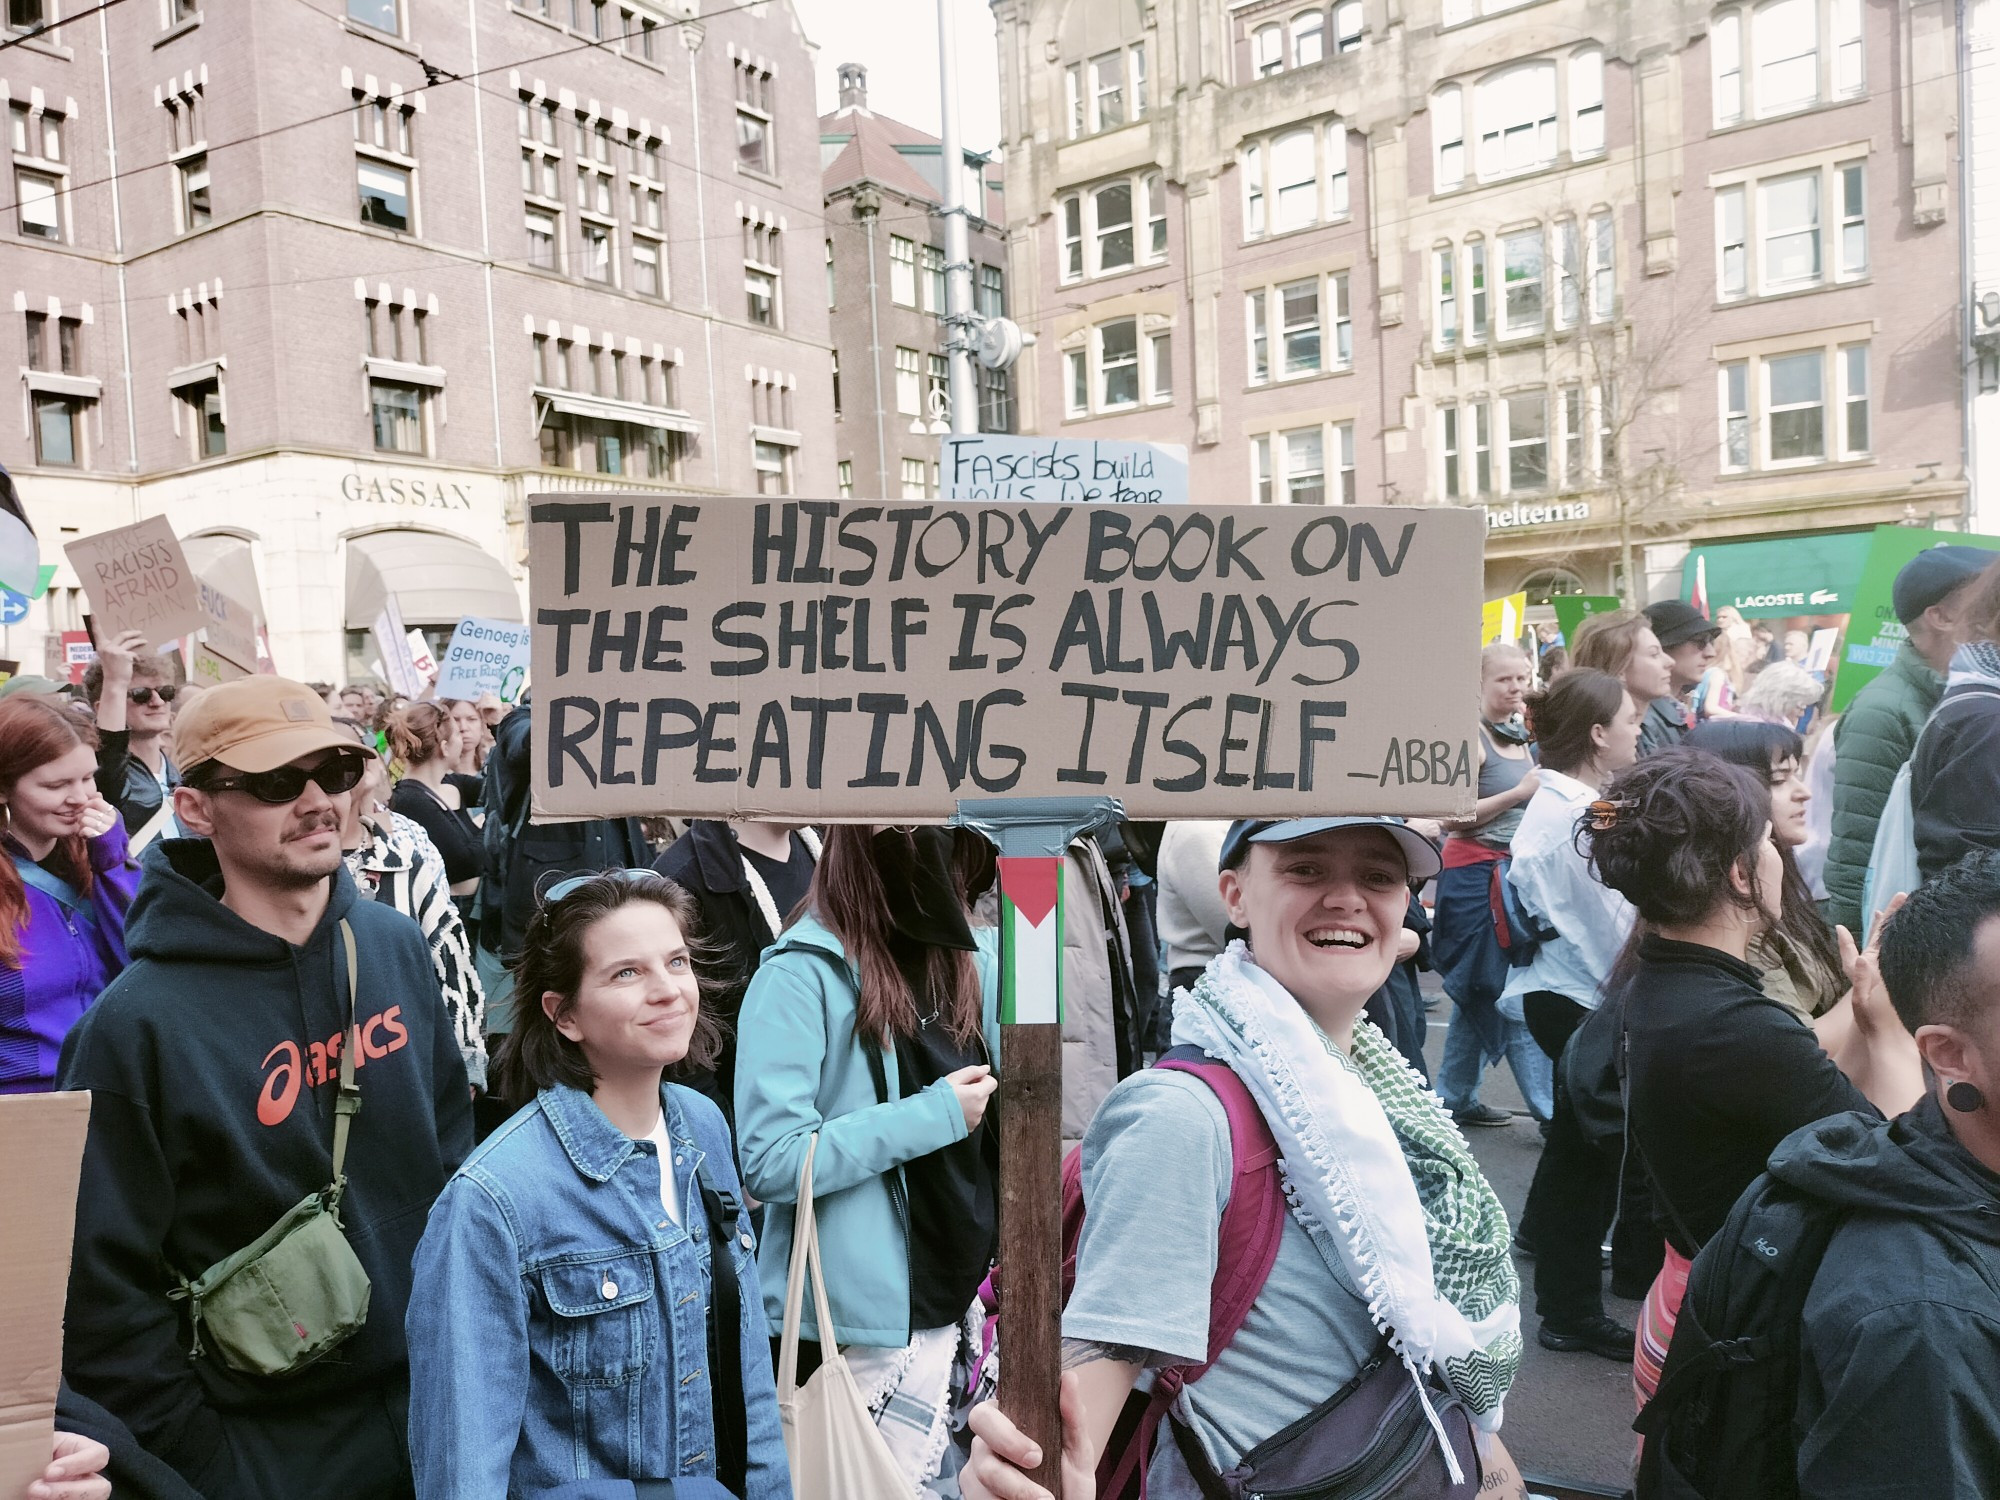 GASSAN
Fascists build
walls we tear
THE HISTORY BOOK ON
THE SHELF IS ALWAYS
REPEATING ITSELF -ABBA
MAKE
RACISTS
AFRAID
AGAIN
Genoeg is
genoeg
FREE
heltema
LACOSTE
asics
H2O